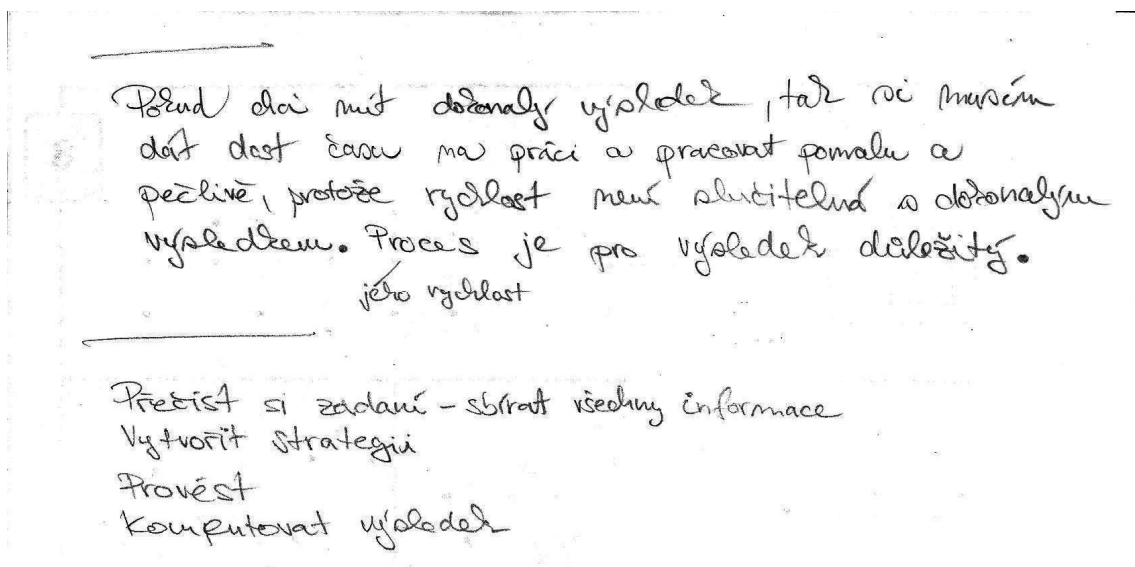 Pokud chci mít dokonalý výsledek, tak si musím
dát dost času na práci a pracovat pomalu a
pečlivě, protože rychlost není slučitelná s dokonalým
výsledkem. Proces je pro výsledek důležitý.
jeho rychlost
Přečíst si zadaní - sbírat všechny informace
Vytvořit strategii
Provést
Komputovat výsledek